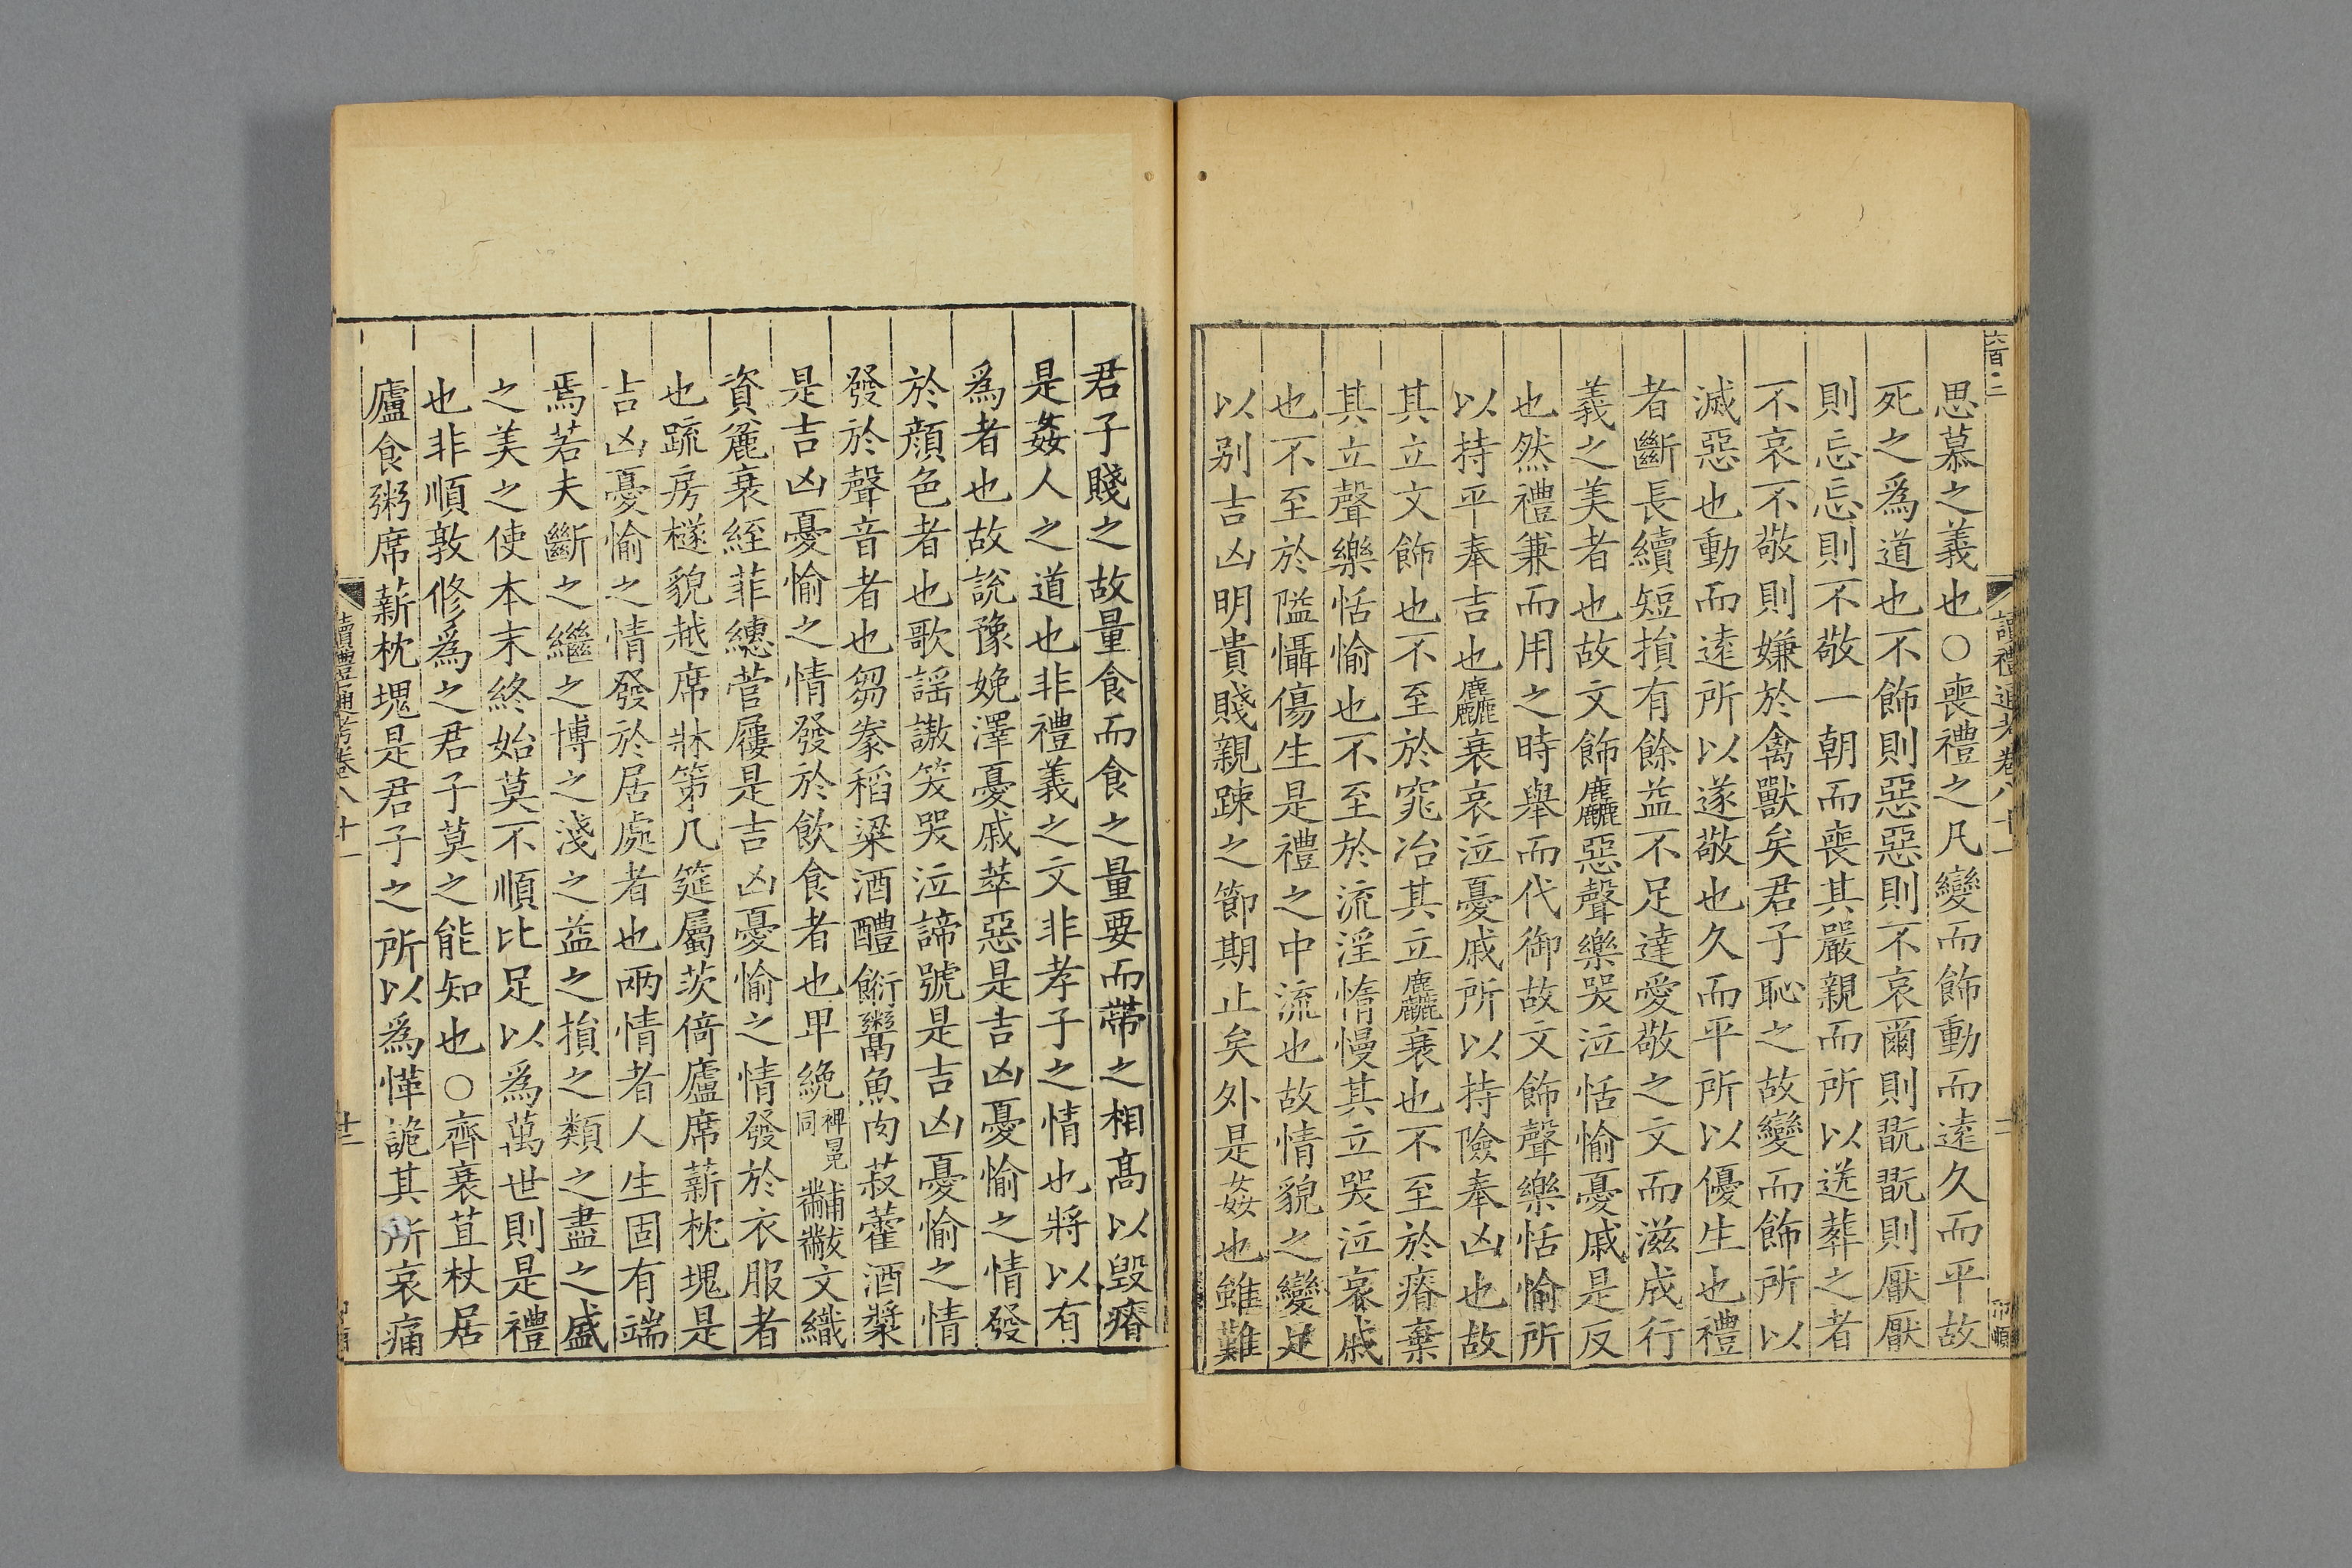 六百二
讀禮通考卷八十一
思慕之義也○喪禮之凡變而飾動而遠久而平故
死之爲道也不飾則惡惡則不哀爾則翫翫則厭厭
則忘忘則不敬一朝而喪其嚴親而所以送葬之者
不哀不敬則嫌於禽獸矣君子恥之故變而飾所以
滅惡也動而遠所以遂敬也久而平所以優生也禮
者斷長續短損有餘益不足達愛敬之文而滋成行
義之美者也故文飾麤惡聲樂哭泣恬愉憂戚是反
也然禮兼而用之時舉而代御故文飾聲樂恬愉所
以持平奉吉也麤衰哀泣憂戚所以持險奉凶也故
其立文飾也不至於窕冶其立麤衰也不至於瘠棄
其立聲樂恬愉也不至於流淫惰慢其立哭泣哀戚
也不至於隘懾傷生是禮之中流也故情貌之變足
以别吉凶明貴賤親踈之節期止矣外是姦也雖難
君子賤之故量食而食之量要而帶之相高以毀瘠
是姦人之道也非禮義之文非孝子之情也將以有
爲者也故說豫娩澤憂戚萃惡是吉凶憂愉之情發
於顔色者也歌謡謸笑哭泣諦號是吉凶憂愉之情
發於聲音者也芻豢稻粱酒醴餰鬻魚肉菽藿酒漿
是吉凶憂愉之情發於飲食者也卑絻裨冕同黼黻文織
資麄衰絰菲繐菅屨是吉凶憂愉之情發於衣服者
也疏房檖貌越席牀笫几筵屬茨倚廬席薪枕塊是
吉凶憂愉之情發於居處者也兩情者人生固有端
焉若夫斷之繼之博之淺之益之損之類之盡之盛
之美之使本末終始莫不順比足以爲萬世則是禮
也非順敦修爲之君子莫之能知也○齊衰苴杖居
廬食粥席薪枕塊是君子之所以爲愅詭其所哀痛
讀禮通考卷八十一